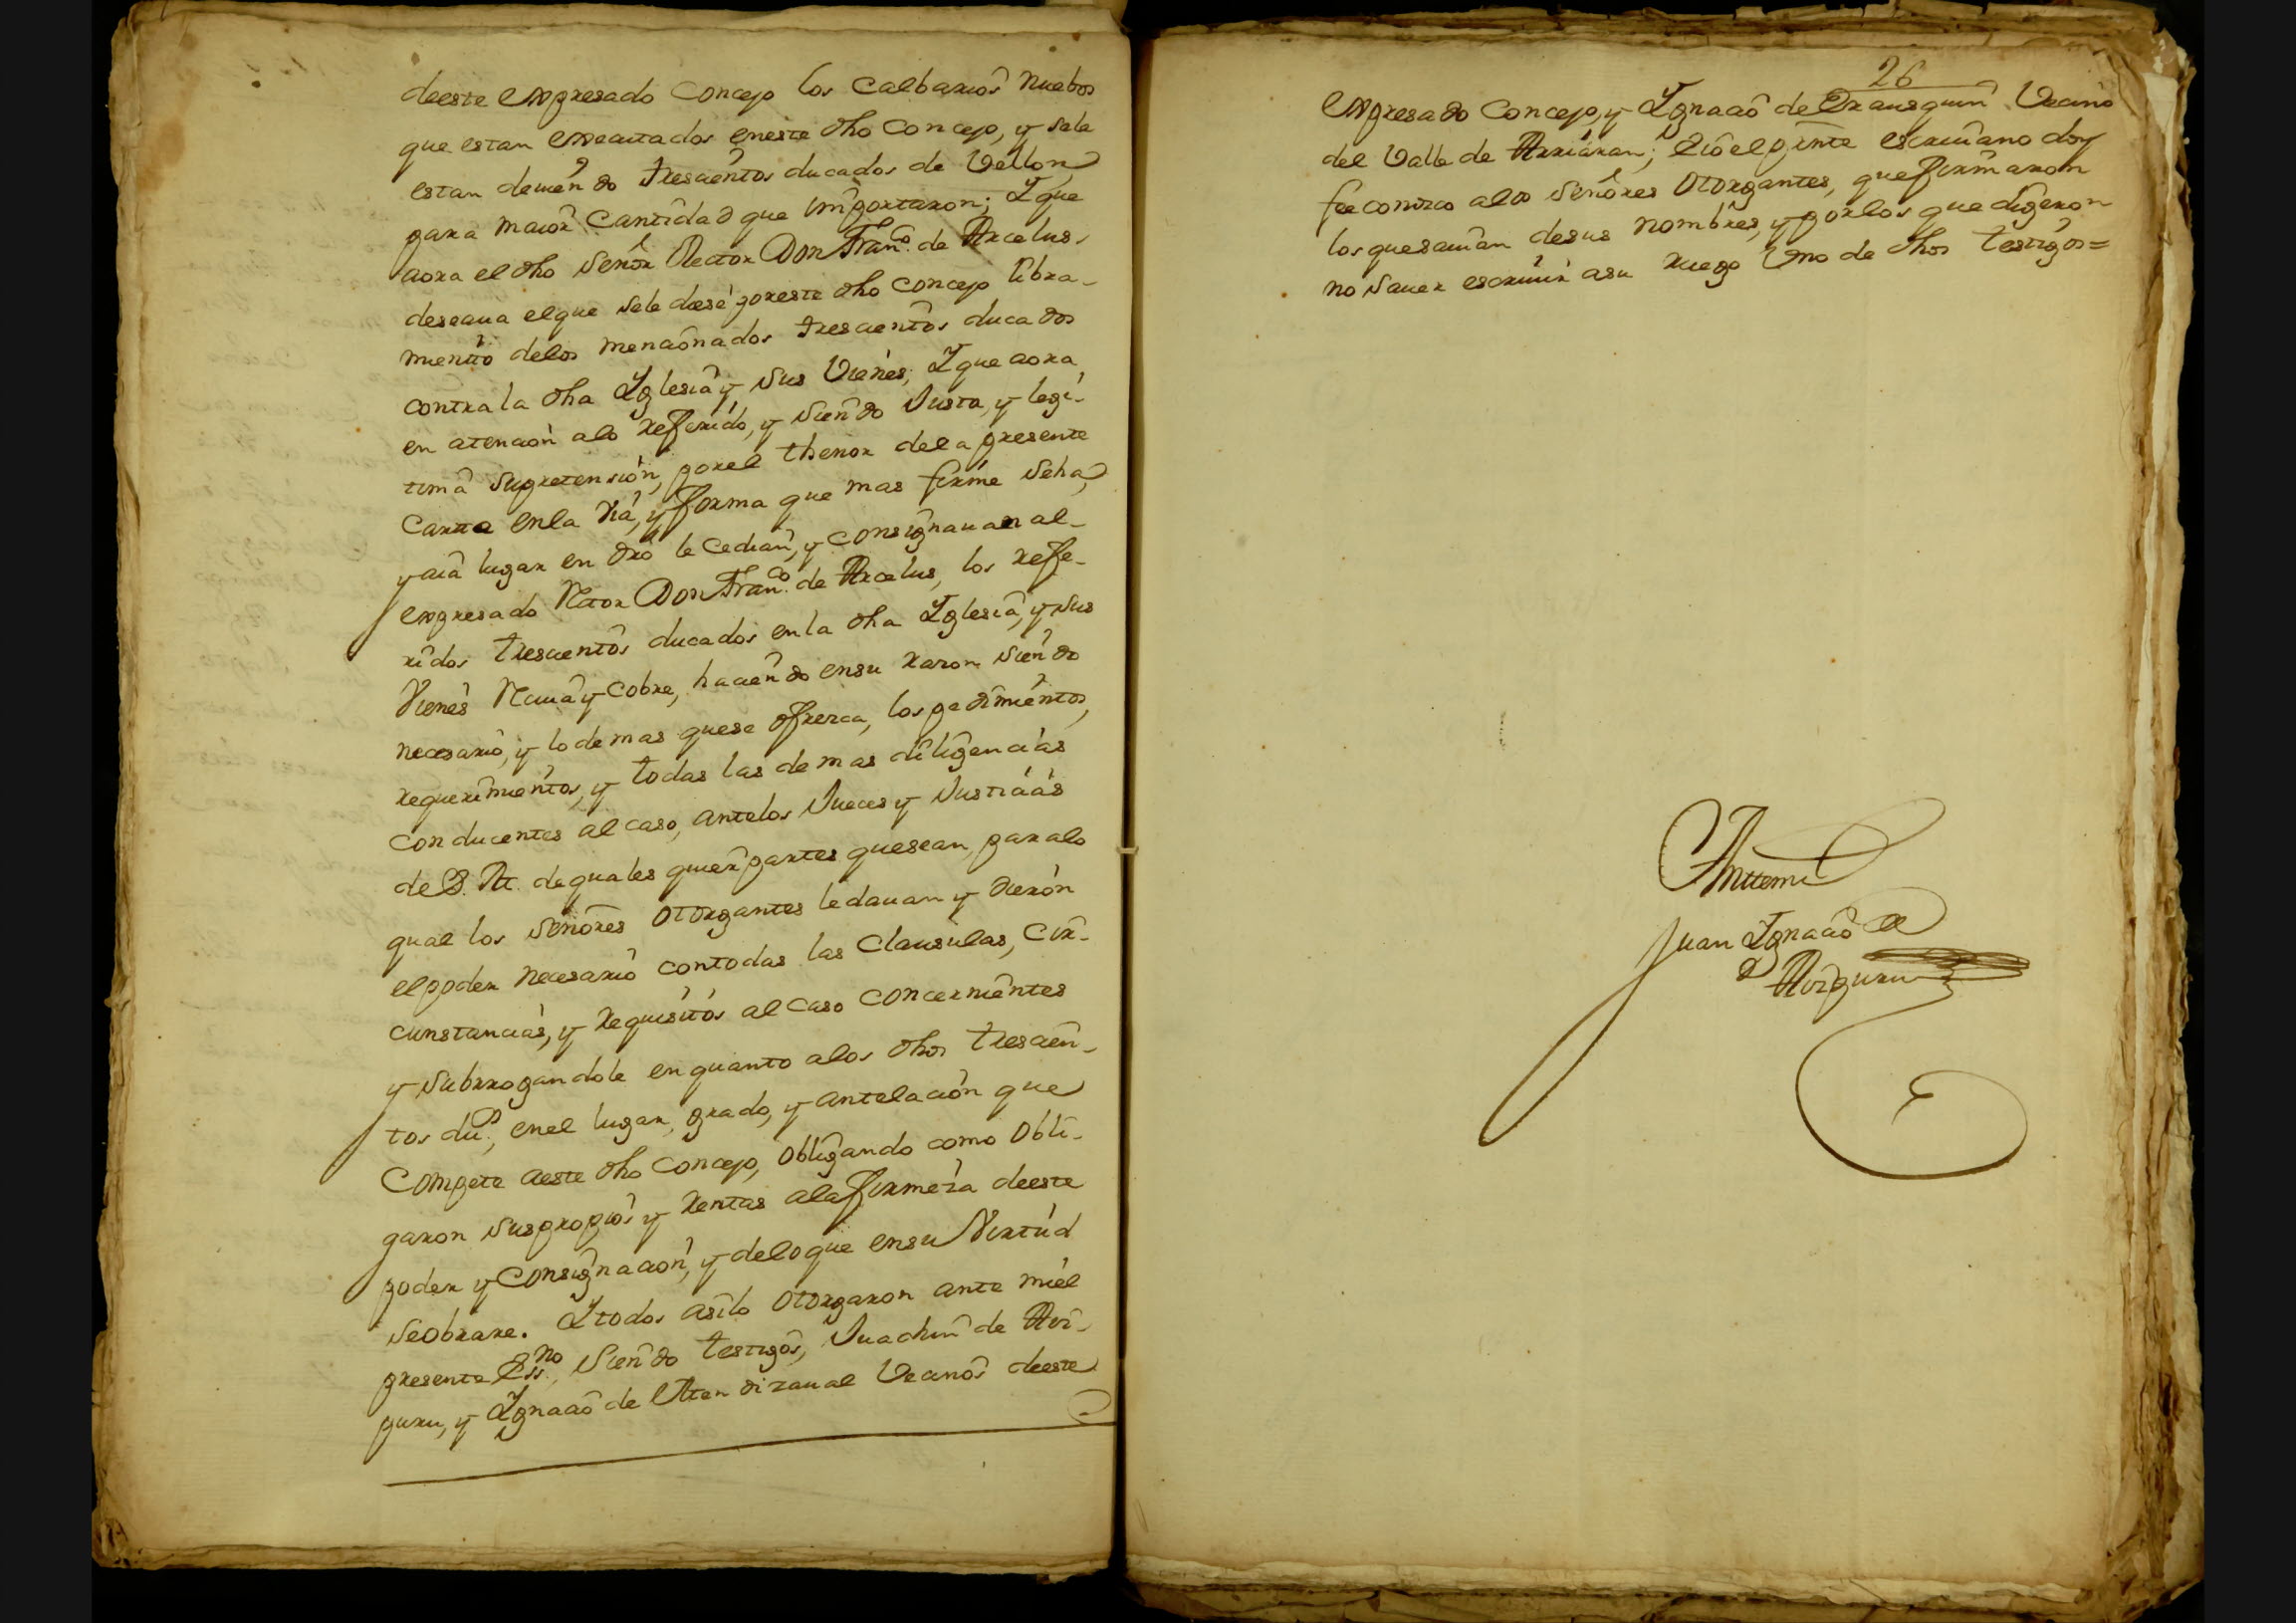 deeste expresado Concejo los Calbarios nuebos
que estan executtados eneste dho Concejo, y sele
estan deviendo trescientos ducados de Vellon
para maior Canttidad que ymportaron; Y que
aora el dho Señor Rector Don Fran.co de Arcelus,
deseaua elque sele diese poreste dho Concejo libra-
miento delos mencionados trescientos ducados
contra la dha Yglesia y sus Vienes; Y que aora
en atencion alo referido, y siendo Justa, y legi-
tima supretension, porel thenor dela presente
Cartta enla via, y forma que mas firme seha,
y aia lugar en dro le Cedian, y Consignauan al-
expresado Retor Don Fran.co de Arcelus, los refe-
ridos trescientos ducados enla dha Yglesia, y sus
Vienes Reciua y Cobre, haciendo ensu razon siendo
necesario, y lo demas quese ofrezca, los pedimientos,
requerimientos, y todas las demas diligencias
Conducentes al caso, antelos Jueces y Justicias
de S. M. dequales quier partes quesean, paralo
qual los Señores Otorgantes ledauan y dieron
elpoder necesario contodas las Clausulas, Cir-
cunstancias, y requisitos al Caso Concernientes
y subrrogandole enquanto alos dhos trescien-
tos du.s, enel lugar, grado, y antelacion que
Compete aeste dho Concejo, Obligando como Obli-
garon suspropios y rentas alafirmeza deeste
poder y Consignacion, y deloque ensu Virtud
seobrare. Y todos asilo Otorgaron ante miel
presente Ess.no, siendo testigos, Juachin de Aiz-
puru, y Ygnacio de Atendizaual Vecinos deeste
26
expresado Concejo, y Ygnacio de Orausquin Vecino
del Valle de Arriaran; E io elpnte escriuano doy
fee conozco alos Señores Otorgantes, quefirmaron
los quesauian desus nombres, y porlos que digeron
no sauer escriuir asu ruego Vno de dhos testigos=
Anttemi
Juan Ygnacio de
Aizpuru